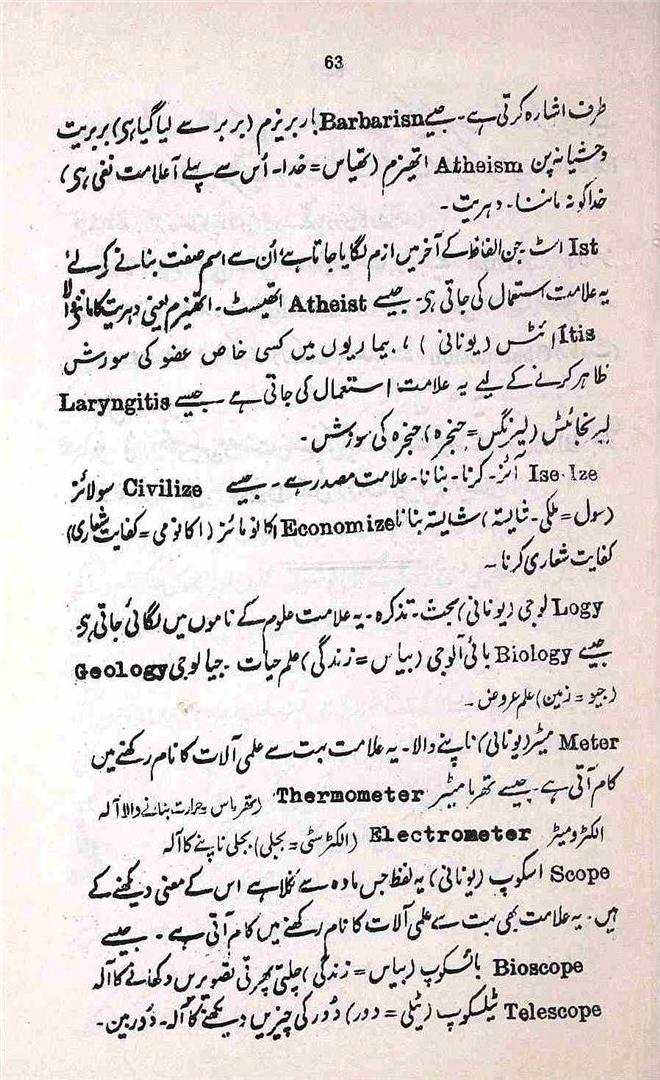 63
طرف اشارہ کرتی ہے۔ جیسے Barbarisn باربریزم (بربر سے لیا گیا ہی) بربریت
وحشیانہ پن Atheism اتھیزم (تھیاس = خدا۔ اُس سے پہلے آ علامت نفی ہی)
خدا کو نہ ماننا۔ دہریت۔
Ist اسٹ۔ جن الفاظ کے آخر میں ازم لگایا جاتا ہے اُن سے اسم صفت بنانے کے لیے
یہ علامت استعمال کی جاتی ہی۔ جیسے Atheist اتھیسٹ۔ اتھیزم یعنی دہریت کا ماننے والا
Itis ائٹس (یونانی)، بیماریوں میں کسی خاص عضو کی سوزش
ظاہر کرنے کے لیے یہ علامت استعمال کی جاتی ہے۔ جیسے Laryngitis
لیرنجائٹس (لیرنگس = حنجرہ) حنجرہ کی سوزش۔
Ise۔Ize آئز۔ کرنا۔ بنانا۔ علامت مصدر ہے۔ جیسے Civilize سولائز
(سول = ملکی۔ شایستہ) شایستہ بنانا Economize اکانومائز (اکانومی = کفایت شعاری)
کفایت شعاری کرنا۔
Logy لوجی (یونانی) بحث۔ تذکرہ۔ یہ علامت علوم کے ناموں میں لگائی جاتی ہی
جیسے Biology بائی آلوجی (بیاس = زندگی) علم حیات۔ جیالوجی Geology
(جیو = زمین) علم عروض۔
Meter میٹر (یونانی) ناپنے والا۔ یہ علامت بہت سے علمی آلات کا نام رکھنے میں
کام آتی ہے۔ جیسے تھرمامیٹر Thermometer (تھرماس = حرارت بتانے والا آلہ
الکٹرومیٹر Electrometer (الکٹرسٹی = بجلی) بجلی ناپنے کا آلہ
Scope اسکوپ (یونانی) یہ لفظ جس مادہ سے نکلا ہے اس کے معنی دیکھنے کے
ہیں۔ یہ علامت بھی بہت سے علمی آلات کا نام رکھنے میں کام آتی ہے۔ جیسے
Bioscope بائسکوپ (بیاس = زندگی) چلتی پھرتی تصویریں دکھانے کا آلہ
Telescope ٹیلسکوپ (ٹیلی = دور) دُور کی چیزیں دیکھنے کا آلہ۔ دُوربین۔